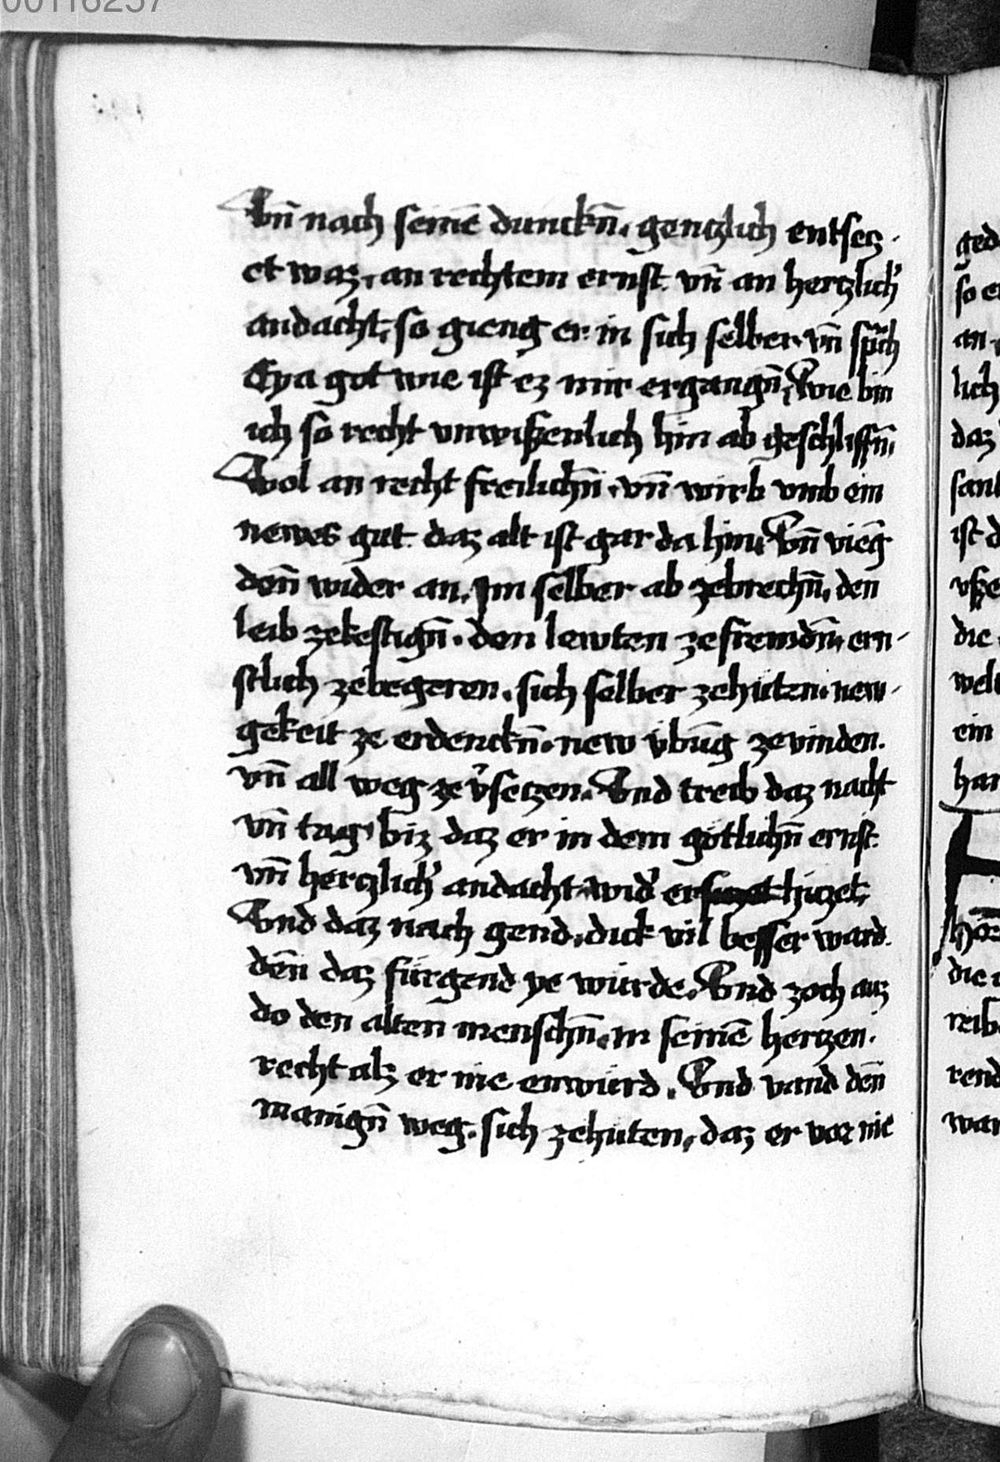 00116257
Vn̄ nach seinē dunckn̄. gentzlich entsecz·
et waz, an rechtem ernst. vn̄ an hertzlich᷑
andacht, so gieng er in sich selber. vn̄ sp᷑ch
Eya got wie ist ez mir ergangn̄, Wie bin
ich so recht vnwißenlich hin ab geschliffn̄,
Wol an recht freilichn̄, vn̄ wirb vmb ein
newes gut. daz alt ist gar da hin, Vn̄ vieng
deñ wider an. Im selber ab zebrechn̄, den
leib zekestign̄. den lewten zefremdn̄, ern-
stlich zebegeren. sich selber zehuten. new-
gekeit ze erdenckn̄. new vbūg ze vinden.
vn̄ all weg ze v᷑setzen. Vnd treib daz nacht
vn̄ tag, biz daz er in dem götlichn̄ ernst.
vn̄ hertzlich᷑ andacht wid᷑ er hiczet,
Vnd daz nach gend, dick vil besser ward.
deñ daz fürgend ye würde. Vnd zoch auz
do den alten menschn̄, in seinē hertzen.
recht alz er nie enwürd. Vnd vand deñ
manign̄ weg. sich zehuten, daz er vor nie
ged
so e
an
lich
daz
ist d
die
welt
ein
har
hōr
die
reib
rend
war